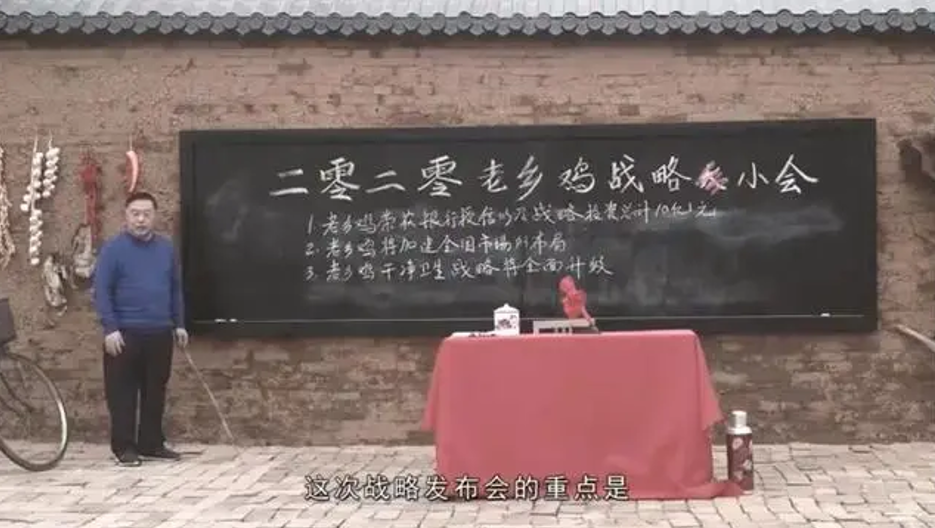 二零二零老乡鸡战略 小会
1. 老乡鸡荣获银行授信以及战略投资总计10亿元
2. 老乡鸡将加速全国市场的布局
3. 老乡鸡干净卫生战略将全面升级
这次战略发布会的重点是